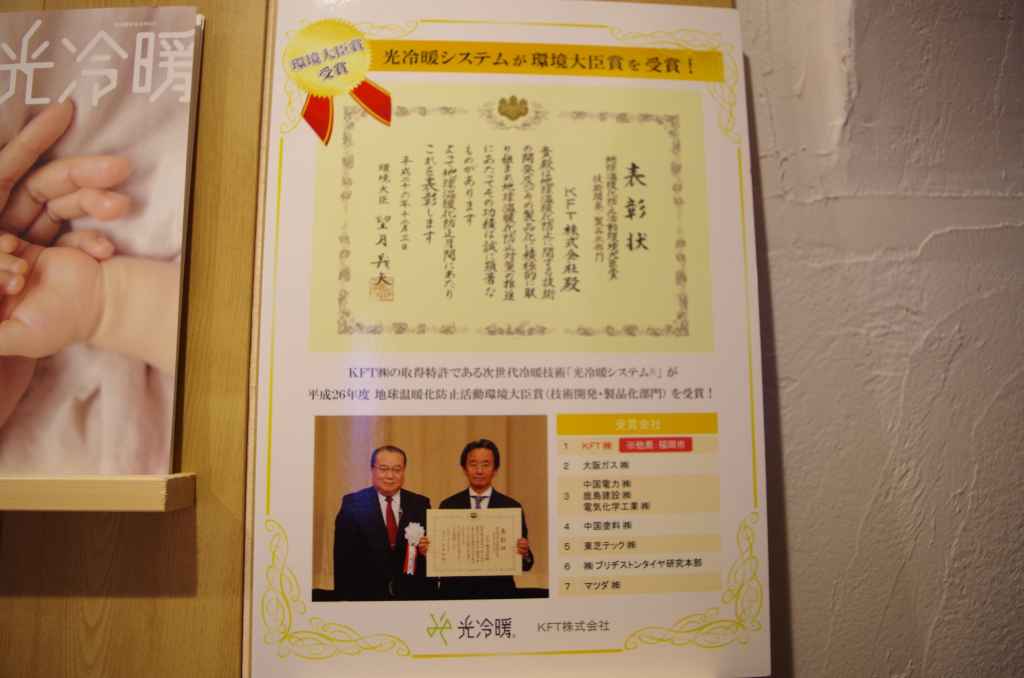 光冷暖
環境大臣賞
受賞
光冷暖システムが環境大臣賞を受賞！
表彰状
地球温暖化防止活動環境大臣賞
技術開発・製品化部門
KFT株式会社殿
貴殿は地球温暖化防止に関する技術
の開発及びその製品化に積極的に取
り組まれ地球温暖化防止対策の推進
にあたってその功績は誠に顕著な
ものがあります
よって地球温暖化防止月間にあたり
これを表彰します
平成二十六年十二月三日
環境大臣 望月義夫
KFT㈱の取得特許である次世代冷暖技術「光冷暖システム®」が
平成26年度 地球温暖化防止活動環境大臣賞(技術開発・製品化部門)を受賞！
受賞会社
1 KFT㈱ ※他薦：福岡市
2 大阪ガス㈱
中国電力㈱
3 鹿島建設㈱
電気化学工業㈱
4 中国塗料㈱
5 東芝テック㈱
6 ㈱ブリヂストンタイヤ研究本部
7 マツダ㈱
光冷暖® KFT株式会社